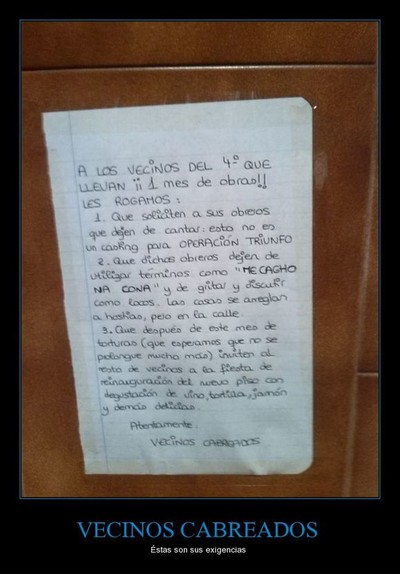 A LOS VECINOS DEL 4º QUE
LLEVAN ¡¡ 1 mes de obras!!
LES ROGAMOS :
1. Que soliciten a sus obreros
que dejen de cantar: esto no es
un casting para OPERACIÓN TRIUNFO
2. Que dichos obreros dejen de
utilizar términos como "ME CAGHO
NA CONA" y de gritar y discutir
como locos. Las cosas se arreglan
a hostias, pero en la calle.
3. Que después de este mes de
torturas (que esperamos que no se
prolongue mucho más) inviten al
resto de vecinos a la fiesta de
reinauguración del nuevo piso con
degustación de vino, tortilla, jamón
y demás delicias.
Atentamente.
VECINOS CABREADOS
VECINOS CABREADOS
Éstas son sus exigencias